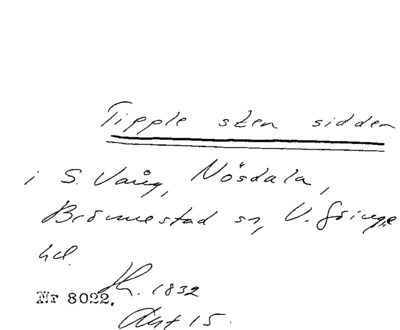 Tipple sten sidden
i S. Vång, Nösdala,
Brönnestad sn, V. Göinge
hd.
Nr 8022. 1832
Akt 15.